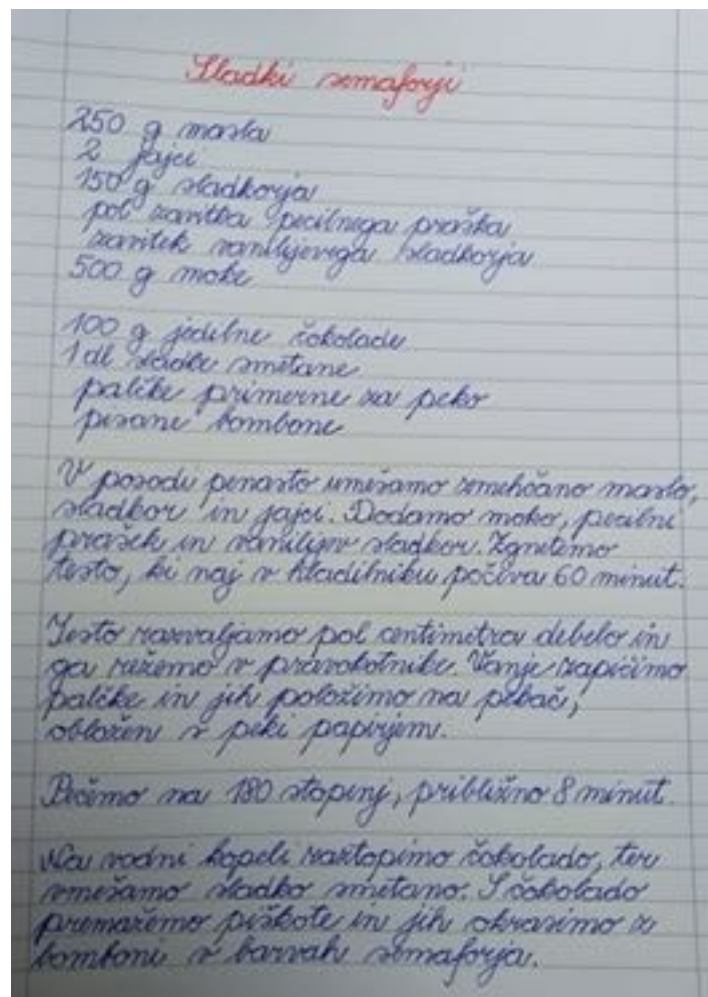 Sladki semaforji
250 g masla
2 jajci
150 g sladkorja
pol zavitka pecilnega praška
zavitek vanilijevega sladkorja
500 g moke
100 g jedilne čokolade
1 dl sladke smetane
palčke primerne za peko
pisane bombone
V posodi penasto umešamo zmehčano maslo,
sladkor in jajci. Dodamo moko, pecilni
prašek in vanilijev sladkor. Zgnetemo
testo, ki naj v hladilniku počiva 60 minut.
Testo razvaljamo pol centimetrov debelo in
ga režemo v pravokotnike. Vanje zapičimo
palčke in jih položimo na pekač,
obložen s peki papirjem.
Pečemo na 180 stopinj, približno 8 minut.
Na vodni kopeli raztopimo čokolado, ter
vmešamo sladko smetano. S čokolado
premažemo piškote in jih okrasimo z
bomboni v barvah semaforja.